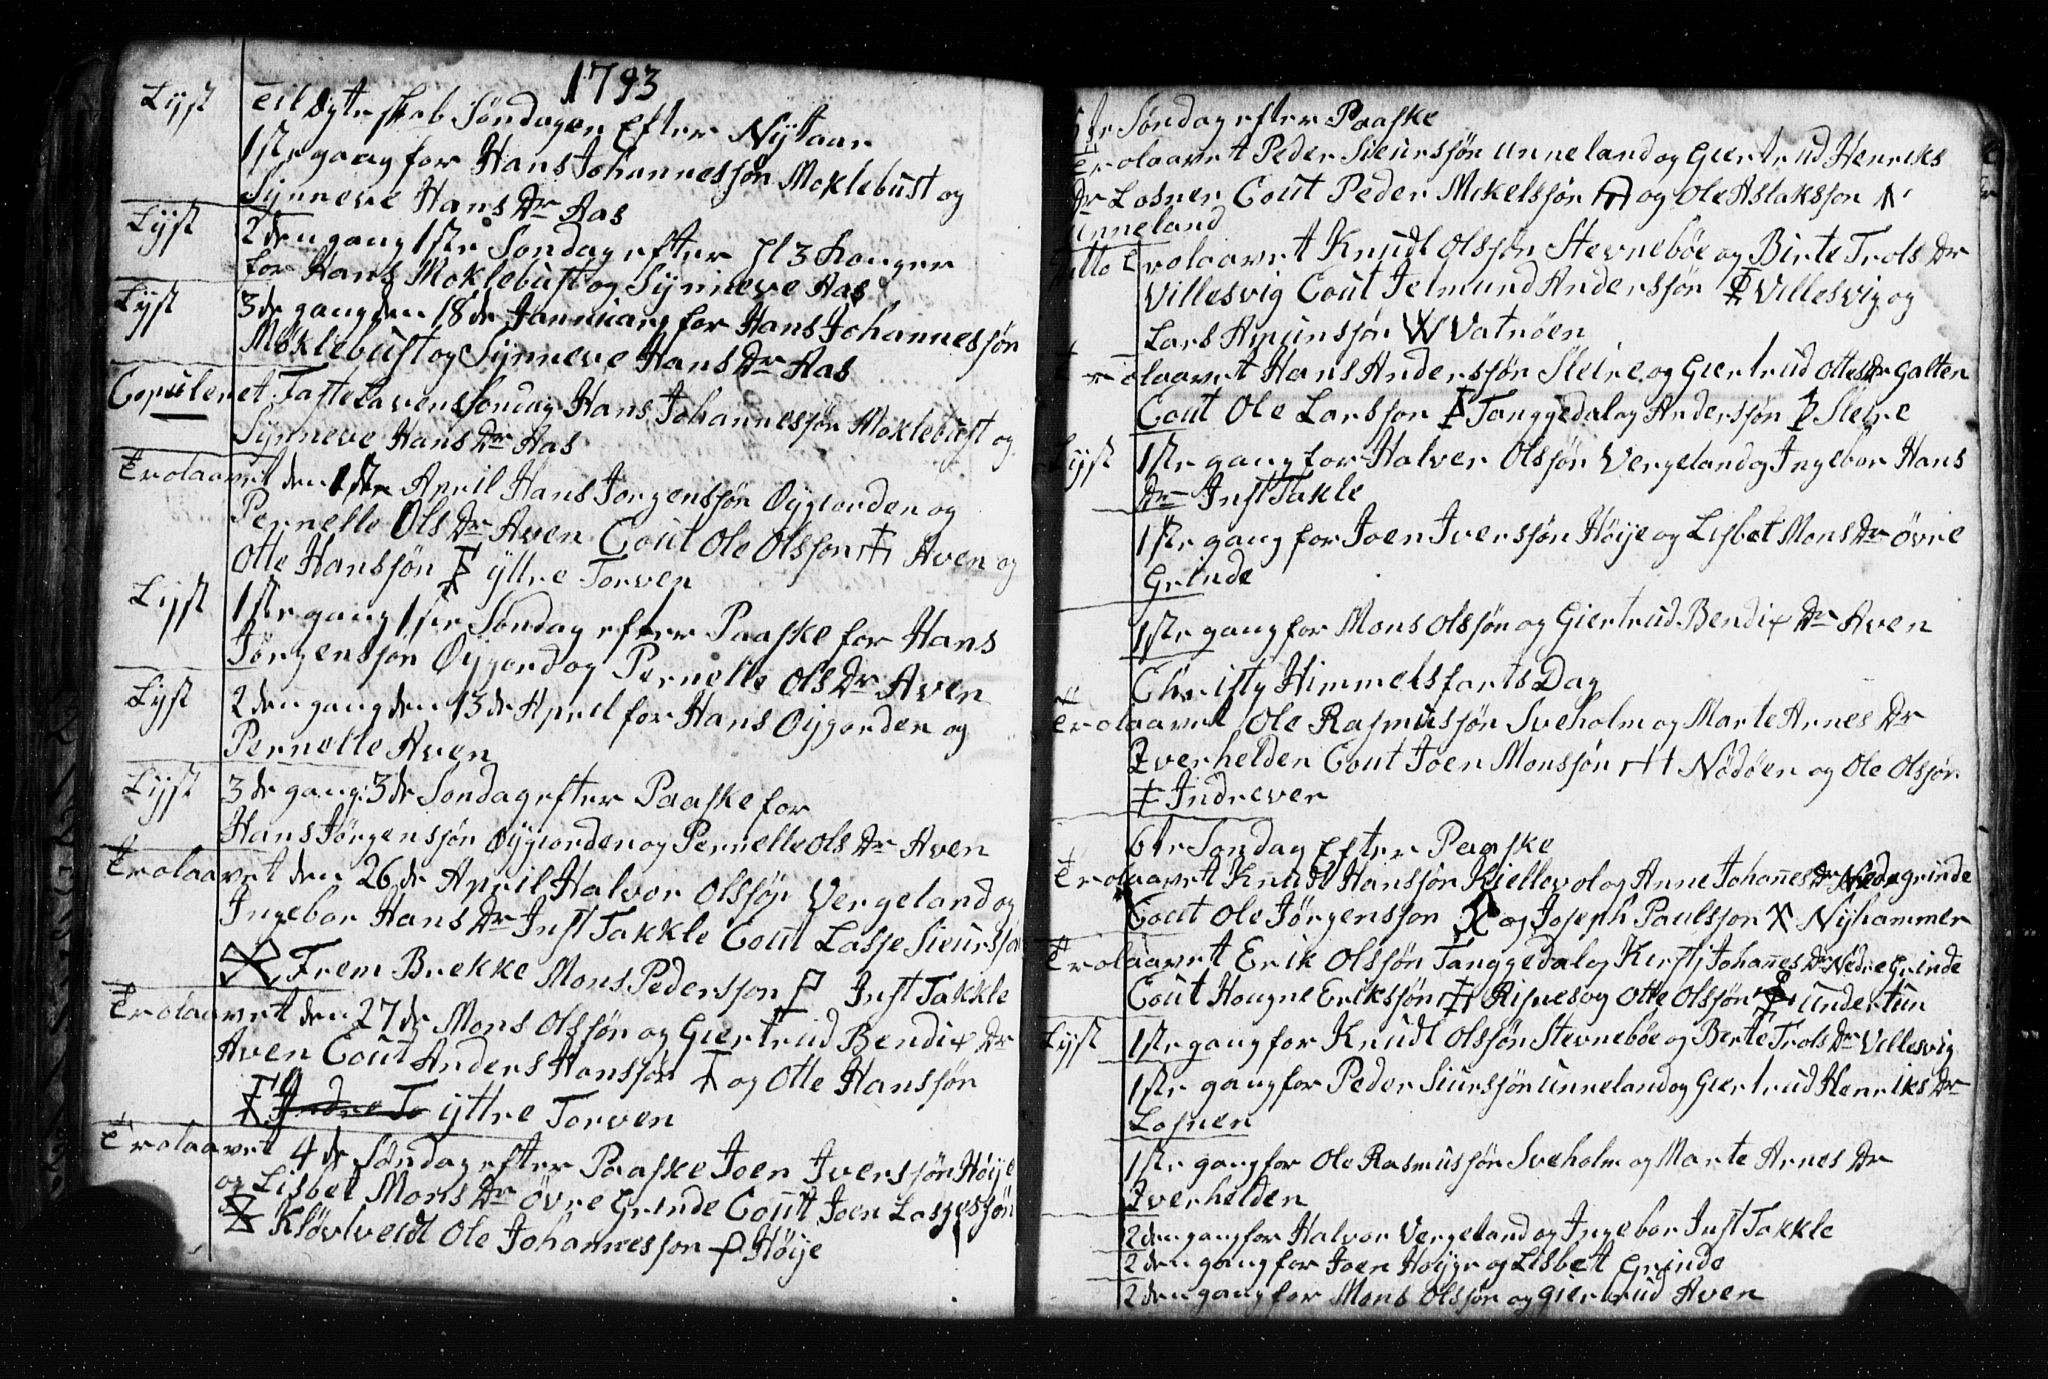 1793
Lyst til Ægteskab Søndagen Efter Nytaar
1ste gang for Hans Johannessøn Moklebust og
Synneve Hans Dr Aas
Lyst 2den gang 1ste Søndag efter Hl 3 Konger
for Hans Moklebust og Synneve Aas
Lyst 3de gang den 18de Januarij for Hans Johannessøn
Moklebust og Synneve Hans Dr Aas
Copuleret Fastelavens søndag Hans Johannessøn Moklebust og
Synneve Hans Dr Aas
Trolaavet den 1ste April Hans Jorgenssøn Øygorden og
Pernelle Ols Dr Aven Cout Ole Olssøn Aven og
Otte Hanssøn yttre Torven
Lyst 1ste gang 1ste Søndag efter Paaske for Hans
Jørgenssøn Øygord og Pernelle Ols Dr Aven
Lyst 2den gang den 13de April for Hans Øygorden og
Pernelle Aven
Lyst 3de gang 3de Søndag efter Paaske for
Hans Jørgenssøn Øygorden og Pernelle Ols Dr Aven
Trolaavet den 26de April Halvor Olssøn Vergeland og
Ingebor Hans Dr Inst Takkle Cout Lasse Sieurssøn
Frem Brekke Mons Pederssøn Inst Takkle
Trolaavet den 27de Mons Olssøn og Giertrud Bendix Dr
Aven Cout Anders Hanssøn og Otte Hanssøn
yttre Torven
Trolaavet 4de Søndag efter Paaske Joen Iverssøn Høije
og Lisbet Mons Dr øvre Grinde Cout Joen Lassessøn
Kløvtveidt Ole Johannessøn Høije
5te Søndag efter Paaske
Trolaavet Peder Sieurssøn unneland og Giertrud Henriks
Dr Losner Cout Peder Mikelssøn og Ole Aslakssøn
unneland
Ditto Trolaavet Knudt Olssøn Stevnebøe og Birte Trols Dr
Villesvig Cout Jelmund Anderssøn Villesvig og
Lars Amunssøn Vatnøen
Trolaavet Hans Anderssøn Sleire og Giertrud Ottes Dr Galten
Cout Ole Larssøn Tanggedal og Anderssøn Sleire
Lyst 1ste gang for Halver Olssøn Vergeland og Ingebor Hans
Dr Inst Takle
1ste gang for Joen Iverssøn Høije og Lisbet Mons Dr øvre
Grinde
1ste gang for Mons Olssøn og Giertrud Bendix Dr Aven
Christy Himmelsfarts Dag
Trolaavet Ole Rasmussøn Sveholm og Marte Arnes Dr
Iverhelden Cout Joen Monssøn Nødøen og Ole Olssøn
Indrever
6te Søndag Efter Paaske
Trolaavet Knudt Hanssøn Kiellevol og Anne Johannes Dr Nedregrinde
Cout Ole Jørgenssøn og Joseph Paulssøn Nyhammer
Trolaavet Erik Olssøn Tanggedal og Kirsti Johannes Dr Nedre Grinde
Cout Hougne Erikssøn Risnes og Otte Olssøn undertun
Lyst 1ste gang for Knudt Olssøn Stevnebøe og Berte Trols Dr Villesvig
1ste gang for Peder Siurssøn unneland og Giertrud Henriks Dr
Losner
1ste gang for Ole Rasmussøn Sveholm og Marte Arnes Dr
Iverhelden
2den gang for Halvor Vergeland og Ingebor Inst Takkle
2den gang for Joen Høijye og Lisbet Grinde
2den gang for Mons Olssøn og giertrud Aven